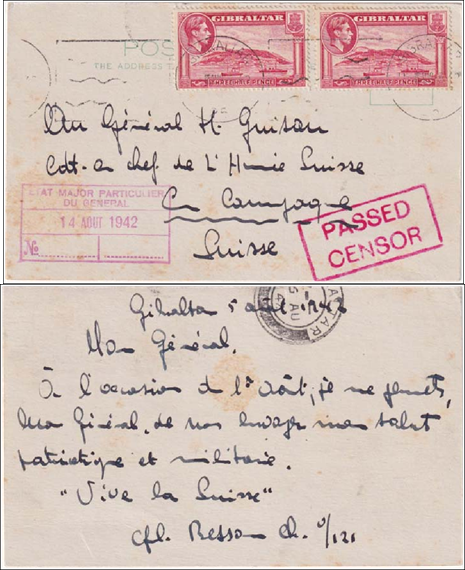 GIBRALTAR
THREE HALF PENCE
GIBRALTAR
THREE HALF PENCE
POS
THE ADDRESS
Au Général H. Guisan
Cdt. en chef de L'Armée Suisse
En Campagne
Suisse
ETAT MAJOR PARTICULIER
DU GENERAL
14 AOUT 1942
No
PASSED
CENSOR
Gibraltar 5 août 1942
Mon Général,
À l'occasion du 1er Août, je me permets,
Mon Général, de vous envoyer mon salut
patriotique et militaire.
"Vive la Suisse"
Cpl. Besson Ch.